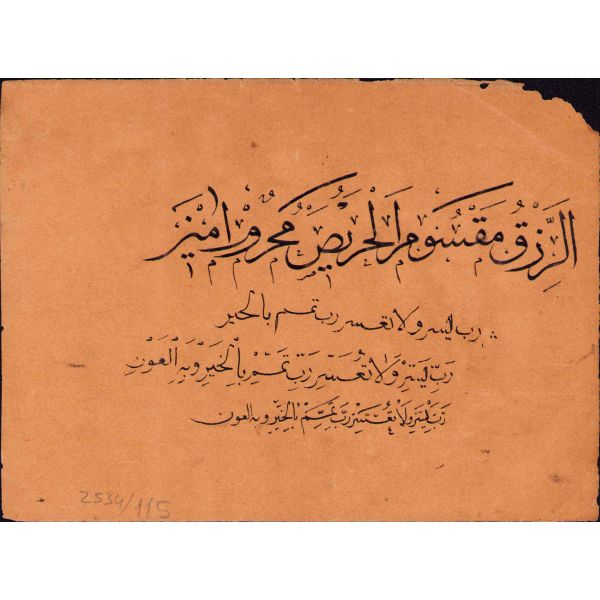 الرِّزْقُ مَقْسُومٌ الْحَرِيصُ مَحْرُومٌ امين
رب يسر ولا تعسر رب تمم بالخير
رَبِّ يَسِّرْ وَلَا تُعَسِّرْ رَبِّ تَمِّمْ بِالْخَيْرِ وَبِهِ الْعَوْن
رَبِّ يَسِّرْ وَلَا تُعَسِّرْ رَبِّ تَمِّمْ بِالْخَيْرِ وبه العون
2534/115